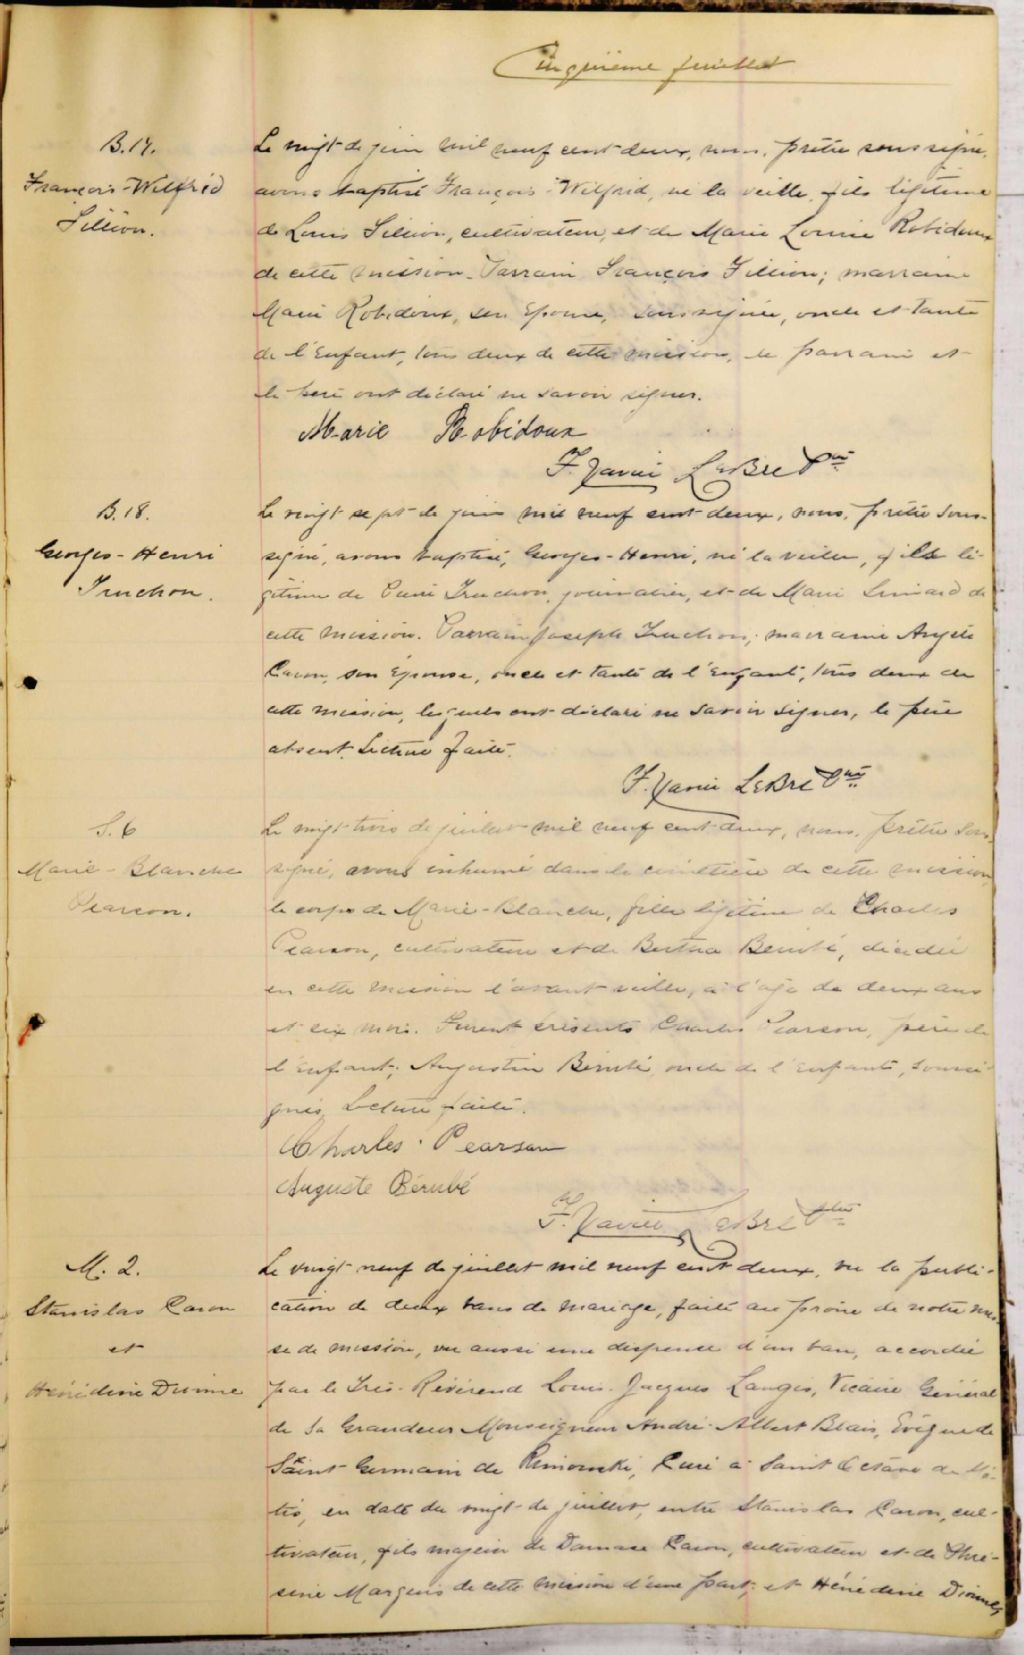 Cinquième feuillet
B.17.
François-Wilfrid
Fillion.
Le vingt de juin mil neuf cent deux, nous, prêtre soussigné,
avons baptisé François-Wilfrid, né la veille, fils légitime
de Louis Fillion, cultivateur, et de Marie Louise Robidoux
de cette mission. Parrain François Fillion; marraine
Marie Robidoux, son épouse, soussignée, oncle et tante
de l'enfant, tous deux de cette mission, le parrain et
le père ont déclaré ne savoir signer.
Marie Robidoux
F. Xavier LeBre Ptre
B.18.
Georges-Henri
Truchon.
Le vingt sept de juin mil neuf cent deux, nous, prêtre sous-
signé, avons baptisé, Georges-Henri, né la veille, fils lé-
gitime de Truchon, journalier, et de Marie Simard de
cette mission. Parrain Joseph Truchon; marraine Angèle
Caron, son épouse, oncle et tante de l'enfant, tous deux de
cette mission, lesquels ont déclaré ne savoir signer, le père
absent. Lecture faite.
F. Xavier LeBre Ptre
S. 6
Marie-Blanche
Pearson.
Le vingt trois de juillet mil neuf cent deux, nous, prêtre sous-
signé, avons inhumé dans le cimetière de cette mission,
le corps de Marie-Blanche, fille légitime de Charles
Pearson, cultivateur et de Bertha Bérubé, décédée
en cette mission l'avant veille, à l'âge de deux ans
et six mois. Furent présents Charles Pearson, père de
l'enfant; Augustin Bérubé, oncle de l'enfant, soussi-
gnés. Lecture faite.
Charles Pearson
Auguste Bérubé
F. Xavier LeBre Ptre
M. 2.
Stanislas Caron
et
Hénédine Dionne
Le vingt neuf de juillet mil neuf cent deux, vu la publi-
cation de deux bans de mariage, faite au prône de notre mes-
se de mission, vu aussi une dispense d'un ban, accordée
par le Très-Révérend Louis-Jacques Langis, Vicaire Général
de Sa Grandeur Monseigneur André-Albert Blais, Évêque de
Saint Germain de Rimouski, Curé à Saint Octave de Mé-
tis, en date du vingt de juillet, entre Stanislas Caron, cul-
tivateur, fils majeur de Damase Caron, cultivateur et de Thé-
 Marquis de cette mission d'une part; et Hénédine Dionne,